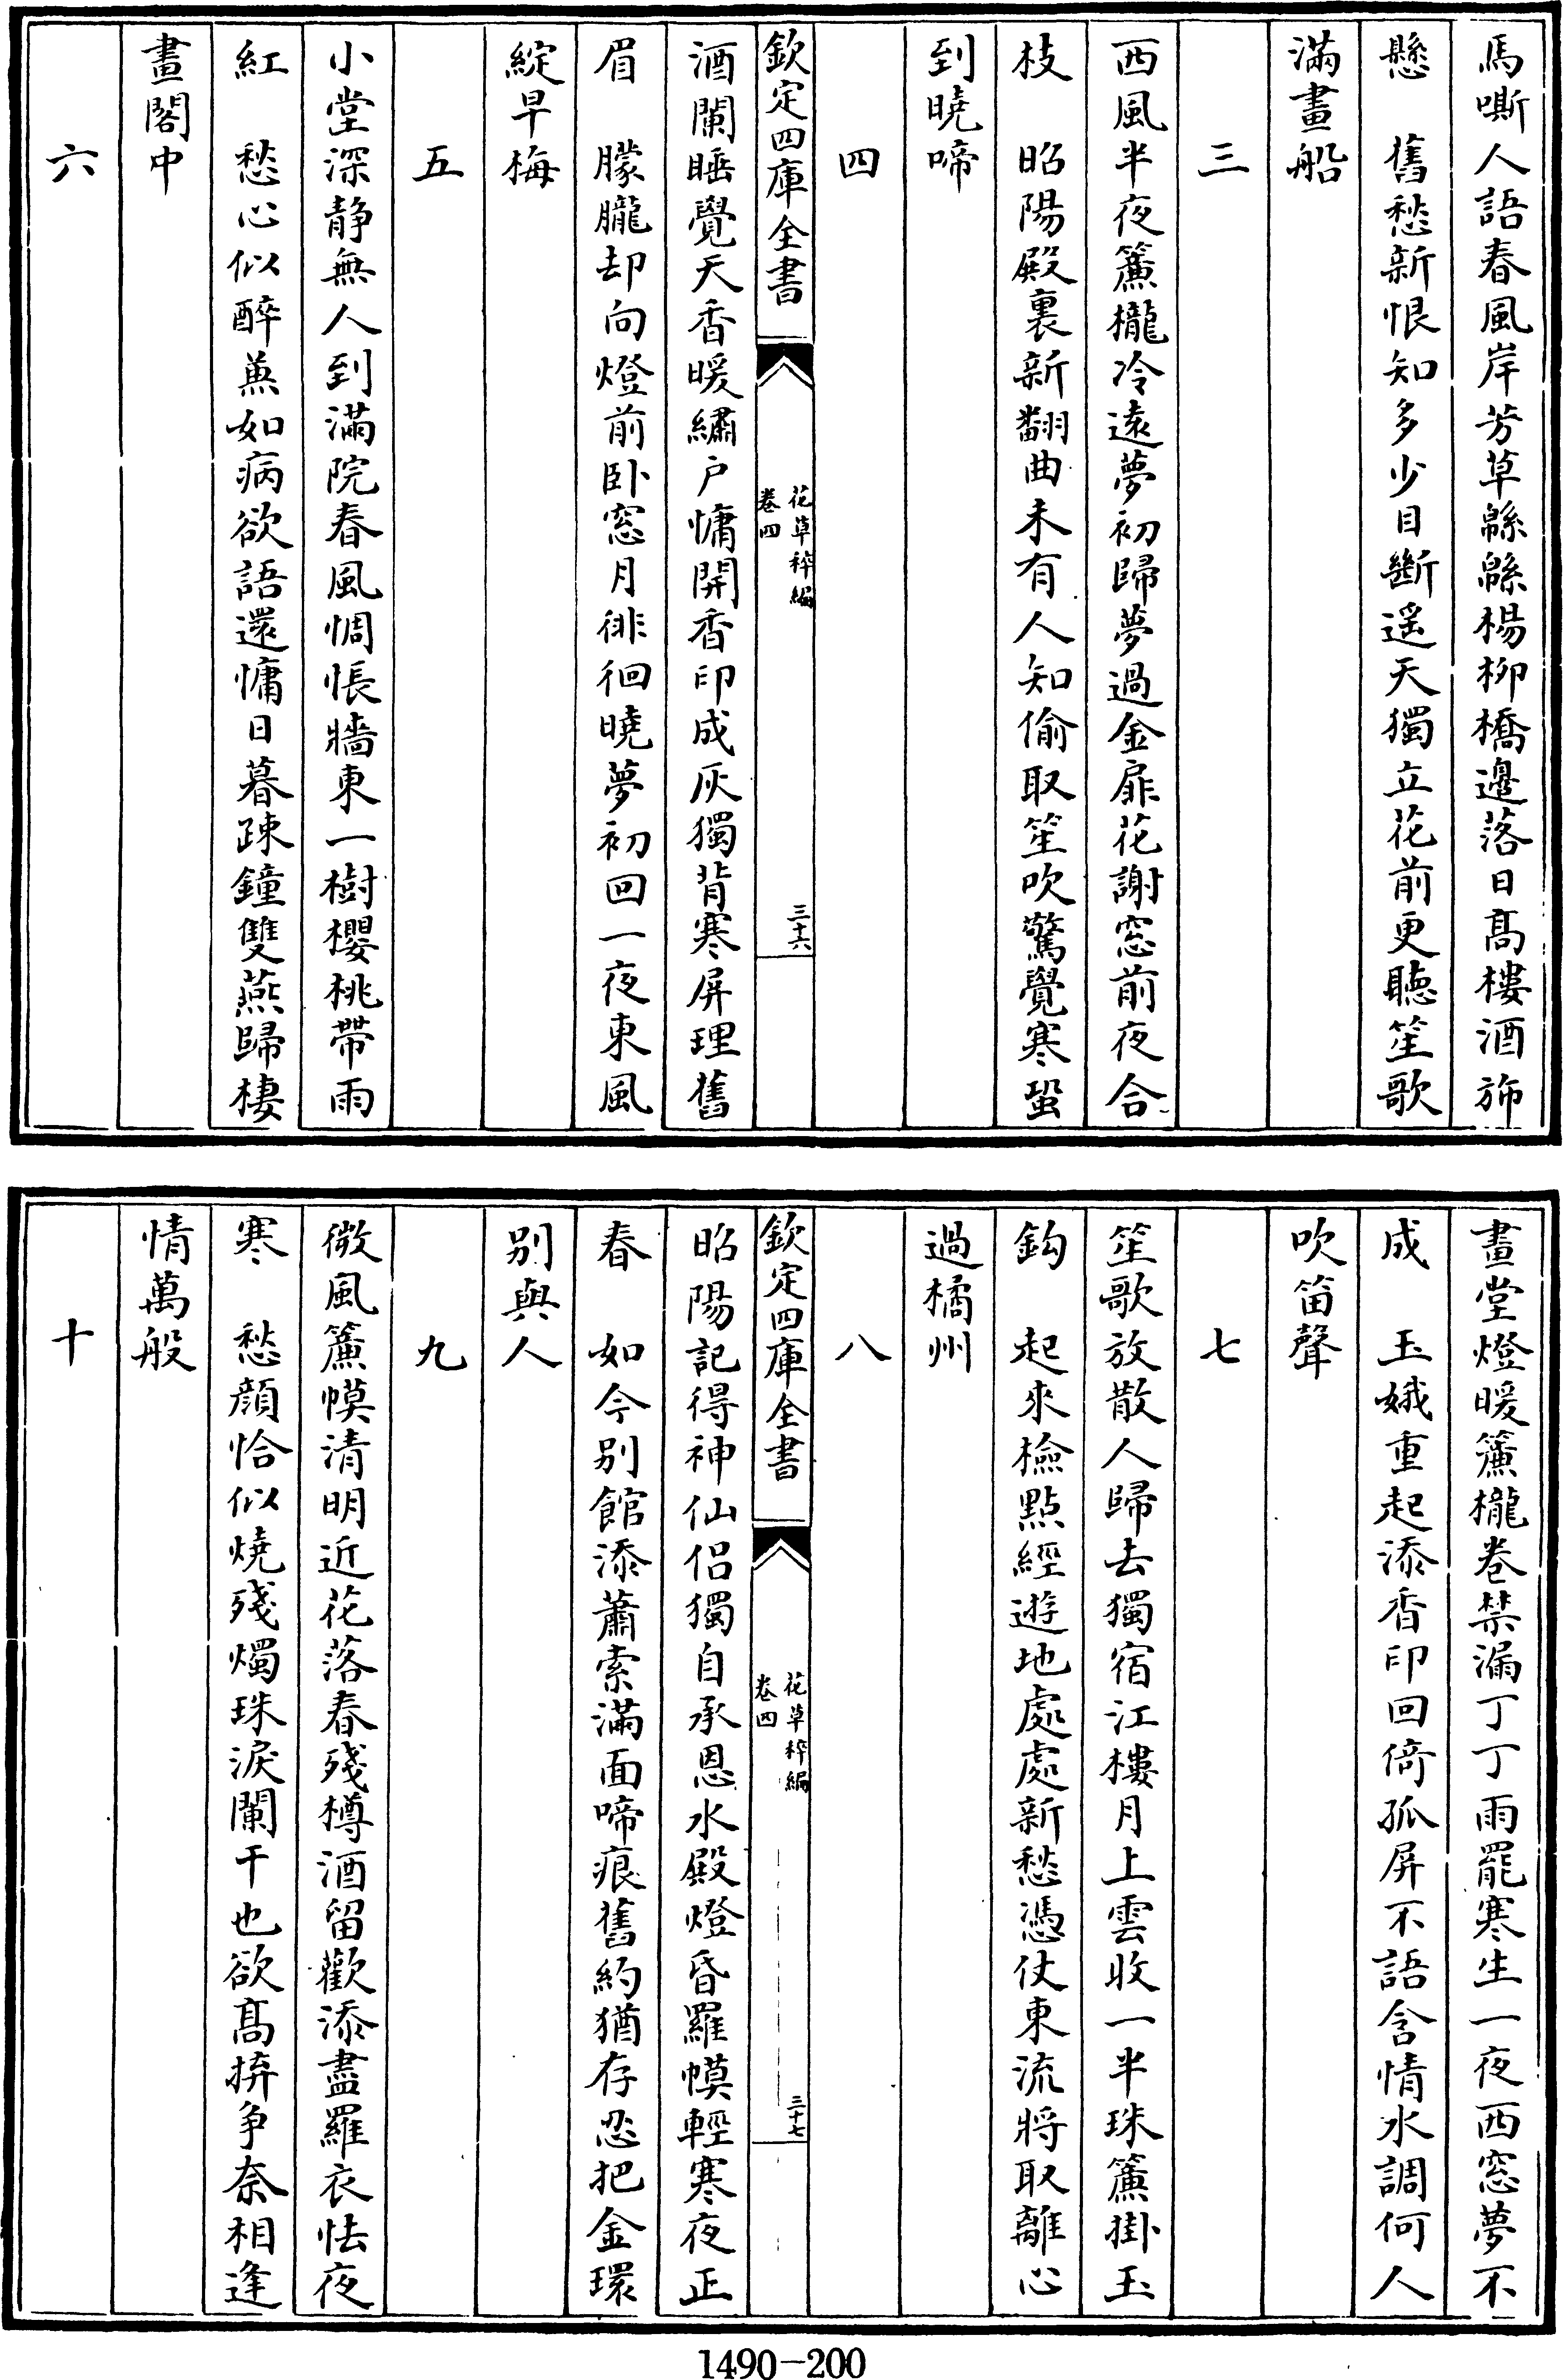 馬嘶人語春風岸芳草緜緜楊柳橋邉落日髙樓酒斾
懸　舊愁新恨知多少目斷遥天獨立花前更聽笙歌
滿畫船
三
西風半夜簾櫳冷逺夢初歸夢過金扉花謝窓前夜合
枝　昭陽殿裏新翻曲未有人知偷取笙吹驚覺寒蛩
到曉啼
四
欽定四庫全書
花草稡編
卷四
三十六
酒闌睡覺天香暖繡户慵開香印成灰獨背寒屏理舊
眉　朦朧却向燈前卧窓月徘徊曉夢初回一夜東風
綻早梅
五
小堂深静無人到滿院春風惆悵牆東一樹櫻桃帶雨
紅　愁心似醉兼如病欲語還慵日暮踈鐘雙燕歸棲
畫閣中
六
畫堂燈暖簾櫳卷禁漏丁丁雨罷寒生一夜西窓夢不
成　玉娥重起添香印回倚孤屏不語含情水調何人
吹笛聲
七
笙歌放散人歸去獨宿江樓月上雲收一半珠簾掛玉
鈎　起來檢點經遊地處處新愁憑仗東流將取離心
過橘州
八
欽定四庫全書
花草稡編
卷四
三十七
昭陽記得神仙侣獨自承恩水殿燈昏羅幙輕寒夜正
春　如今别館添蕭索滿面啼痕舊約猶存忍把金環
别與人
九
微風簾幙清明近花落春殘樽酒留歡添盡羅衣怯夜
寒　愁顔恰似燒殘燭珠淚闌干也欲髙拚争奈相逢
情萬般
十
1490－200